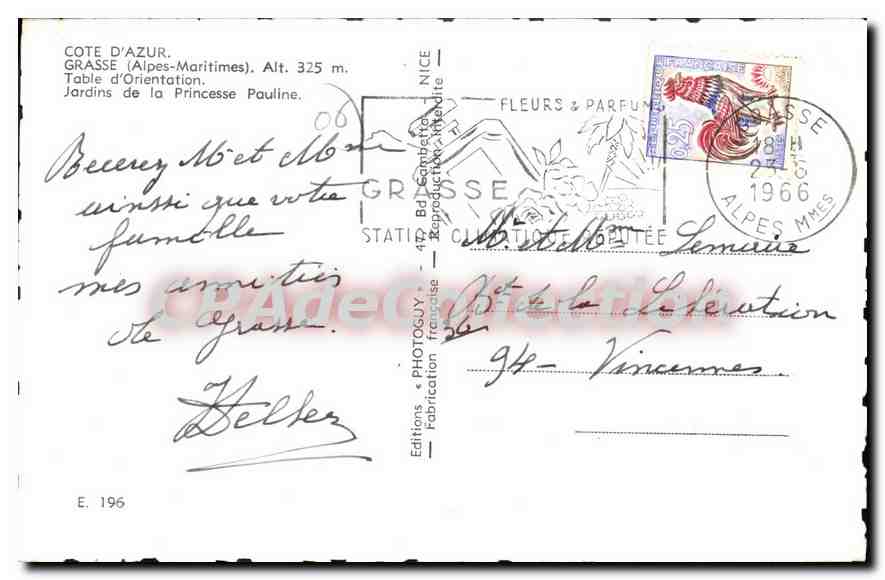 COTE D'AZUR.
GRASSE (Alpes-Maritimes). Alt. 325 m.
Table d'Orientation.
Jardins de la Princesse Pauline.
06
Recevez Mr et Mme
ainsi que votre
famille
mes amitiés
de Grasse.
E. 196
Editions « PHOTOGUY » - 47, Bd Gambetta - NICE
— Fabrication française — Reproduction interdite —
FLEURS & PARFUMS
GRASSE
STATION CLIMATIQUE RÉPUTÉE
REPUBLIQUE FRANÇAISE
0,25
GRASSE
18 H
23-6
1966
ALPES MMES
Mr et Mme Lemaire
36 Bt de la Libération
94 - Vincennes
CPAdeCollection